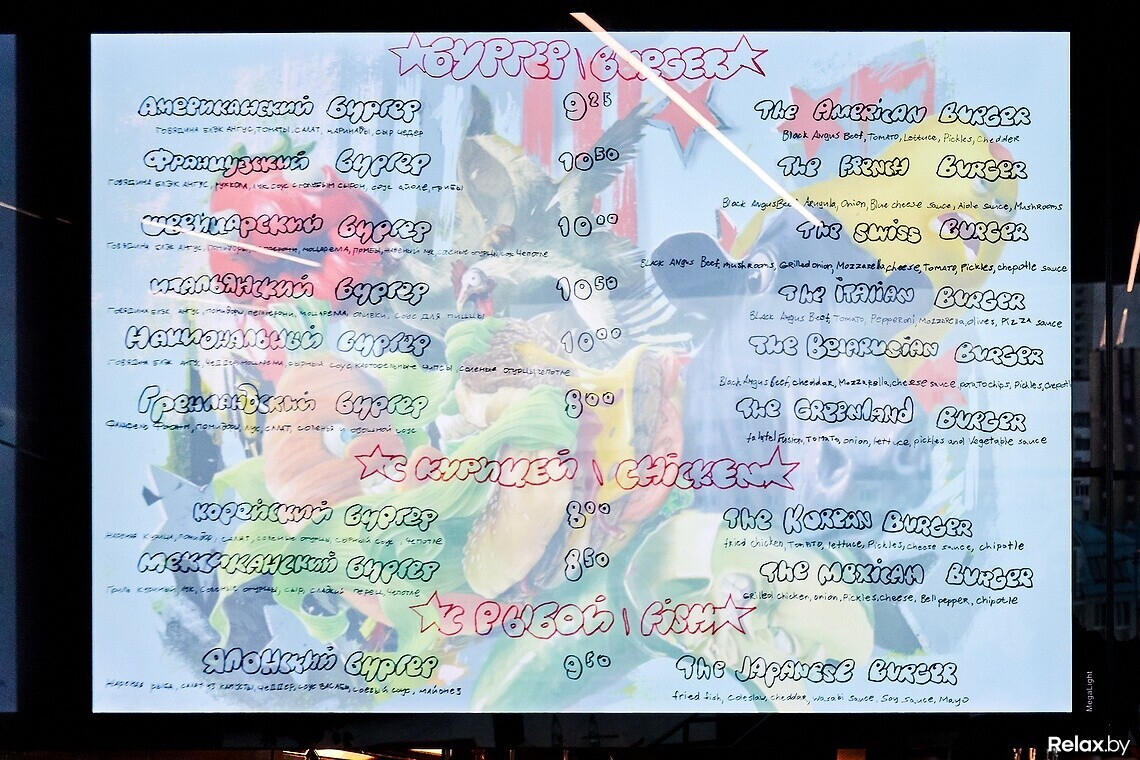 БУРГЕР \ BURGER
Американский бургер 9 25 The American Burger
говядина блэк ангус, томаты, салат, маринады, сыр чедер Black Angus Beef, Tomato, Lettuce, Pickles, Cheddar
Французский бургер 10 50 The French Burger
говядина блэк ангус, руккола, лук, соус с голубым сыром, соус айоле, грибы Black Angus Beef, Arugula, Onion, Blue cheese sauce, Aiole sauce, Mushrooms
Швейцарский бургер 10 00 The Swiss Burger
говядина блэк ангус, моцарелла, грибы, соленые огурцы, соус чепотле Black Angus Beef, mushrooms, Grilled onion, Mozzarella cheese, Tomato, Pickles, chepotle sauce
Итальянский бургер 10 50 The Italian Burger
говядина блэк ангус, помидоры, пепперони, моцарела, оливки, соус для пиццы Black Angus Beef, Tomato, Pepperoni, Mozzarella, olives, Pizza sauce
Национальный бургер 10 00 The Belarusian Burger
говядина блэк ангус, чеддер, моцарела, сырный соус, картофельные чипсы, соленые огурцы, чепотле Black Angus Beef, cheddar, Mozzarella, cheese sauce, potato chips, Pickles,
Гренландский бургер 8 00 The Greenland Burger
помидоры, лук, салат, соленья и овощной соус falafel Fusion, Tomato, onion, lettuce, pickles and Vegetable sauce
С КУРИЦЕЙ \ CHICKEN
Корейский бургер 8 00 The Korean Burger
жареная курица, помидор, салат, соленые огурцы, сырный соус, чепотле fried chicken, Tomato, lettuce, Pickles, cheese sauce, chipotle
Мексиканский бургер 8 50 The Mexican Burger
гриль курица, лук, соленые огурцы, сыр, сладкий перец, чепотле Grilled chicken, onion, Pickles, cheese, Bell pepper, chipotle
С РЫБОЙ \ FISH
Японский бургер 9 50 The Japanese Burger
жареная рыба, салат из капусты, чеддер, соус васаби, соевый соус, майонез fried fish, Coleslaw, cheddar, wasabi sauce, Soy sauce, Mayo
MegaLight
Relax.by